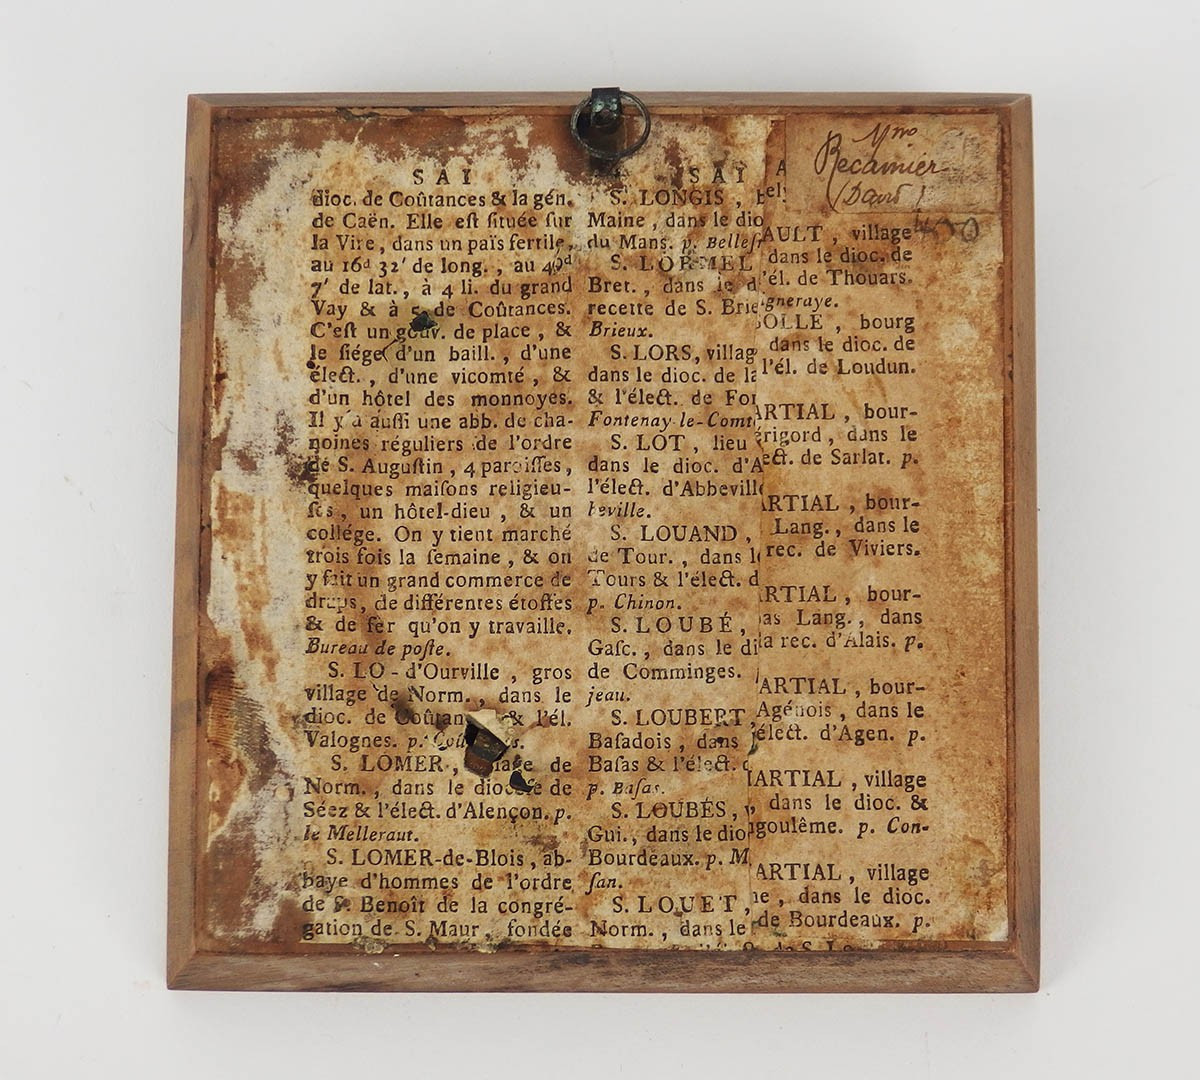 SAI
dioc. de Coûtances & la gén.
de Caën. Elle eſt ſituée ſur
la Vire, dans un païs fertile,
au 16d 32′ de long., au 49d
7′ de lat., à 4 li. du grand
Vay & à 5 de Coûtances.
C'eſt un gouv. de place, &
le ſiége d'un baill., d'une
élect., d'une vicomté, &
d'un hôtel des monnoyes.
Il y a auſſi une abb. de cha-
noines réguliers de l'ordre
de S. Auguſtin, 4 paroiſſes,
quelques maiſons religieu-
ſes, un hôtel-dieu, & un
collége. On y tient marché
trois fois la ſemaine, & on
y fait un grand commerce de
draps, de différentes étoffes
& de fer qu'on y travaille.
Bureau de poſte.
S. LO-d'Ourville, gros
village de Norm., dans le
dioc. de Coûtan & l'él.
Valognes. p.
S. LOMER, de
Norm., dans le dioceſe de
Séez & l'élect. d'Alençon. p.
le Melleraut.
S. LOMER-de-Blois, ab-
baye d'hommes de l'ordre
de S. Benoît de la congré-
gation de S. Maur, fondée
SAI
S. LONGIS,
Maine, dans le dio
du Mans. p. Belleſ
S. LORMEL
Bret., dans le d
recette de S. Brie
Brieux.
S. LORS, villag
dans le dioc. de la
& l'élect. de Fon
Fontenay-le-Comt
S. LOT, lieu
dans le dioc. d'A
l'élect. d'Abbeville
beville.
S. LOUAND,
de Tour., dans l
Tours & l'élect. d
p. Chinon.
S. LOUBÉ,
Gaſc., dans le di
de Comminges.
jeau.
S. LOUBERT
Baſadois, dans
Baſas & l'élect. d
p. Baſas.
S. LOUBÉS,
Gui., dans le dio
Bourdeaux. p. M
ſan.
S. LOUET,
Norm., dans le
Mme
Recamier
(David)
400
AULT, village
dans le dioc. de
l'él. de Thouars.
igneraye.
OLLE, bourg
dans le dioc. de
l'él. de Loudun.
ARTIAL, bour-
érigord, dans le
ect. de Sarlat. p.
ARTIAL, bour-
Lang., dans le
rec. de Viviers.
ARTIAL, bour-
as Lang., dans
la rec. d'Alais. p.
ARTIAL, bour-
Agénois, dans le
élect. d'Agen. p.
ARTIAL, village
dans le dioc. &
goulême. p. Con-
ARTIAL, village
ne, dans le dioc.
de Bourdeaux. p.